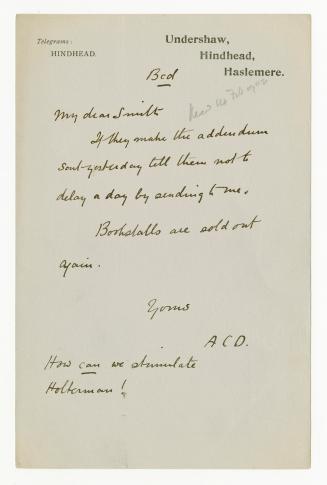 Telegrams:
HINDHEAD.
Undershaw,
Hindhead,
Haslemere.
Bcd
My dear Smith
If they make the addendum
sent yesterday tell them not to
delay a day by sending to me.
Bookstalls are sold out
again.
Yours
A C D.
How can we stimulate
Holterman!